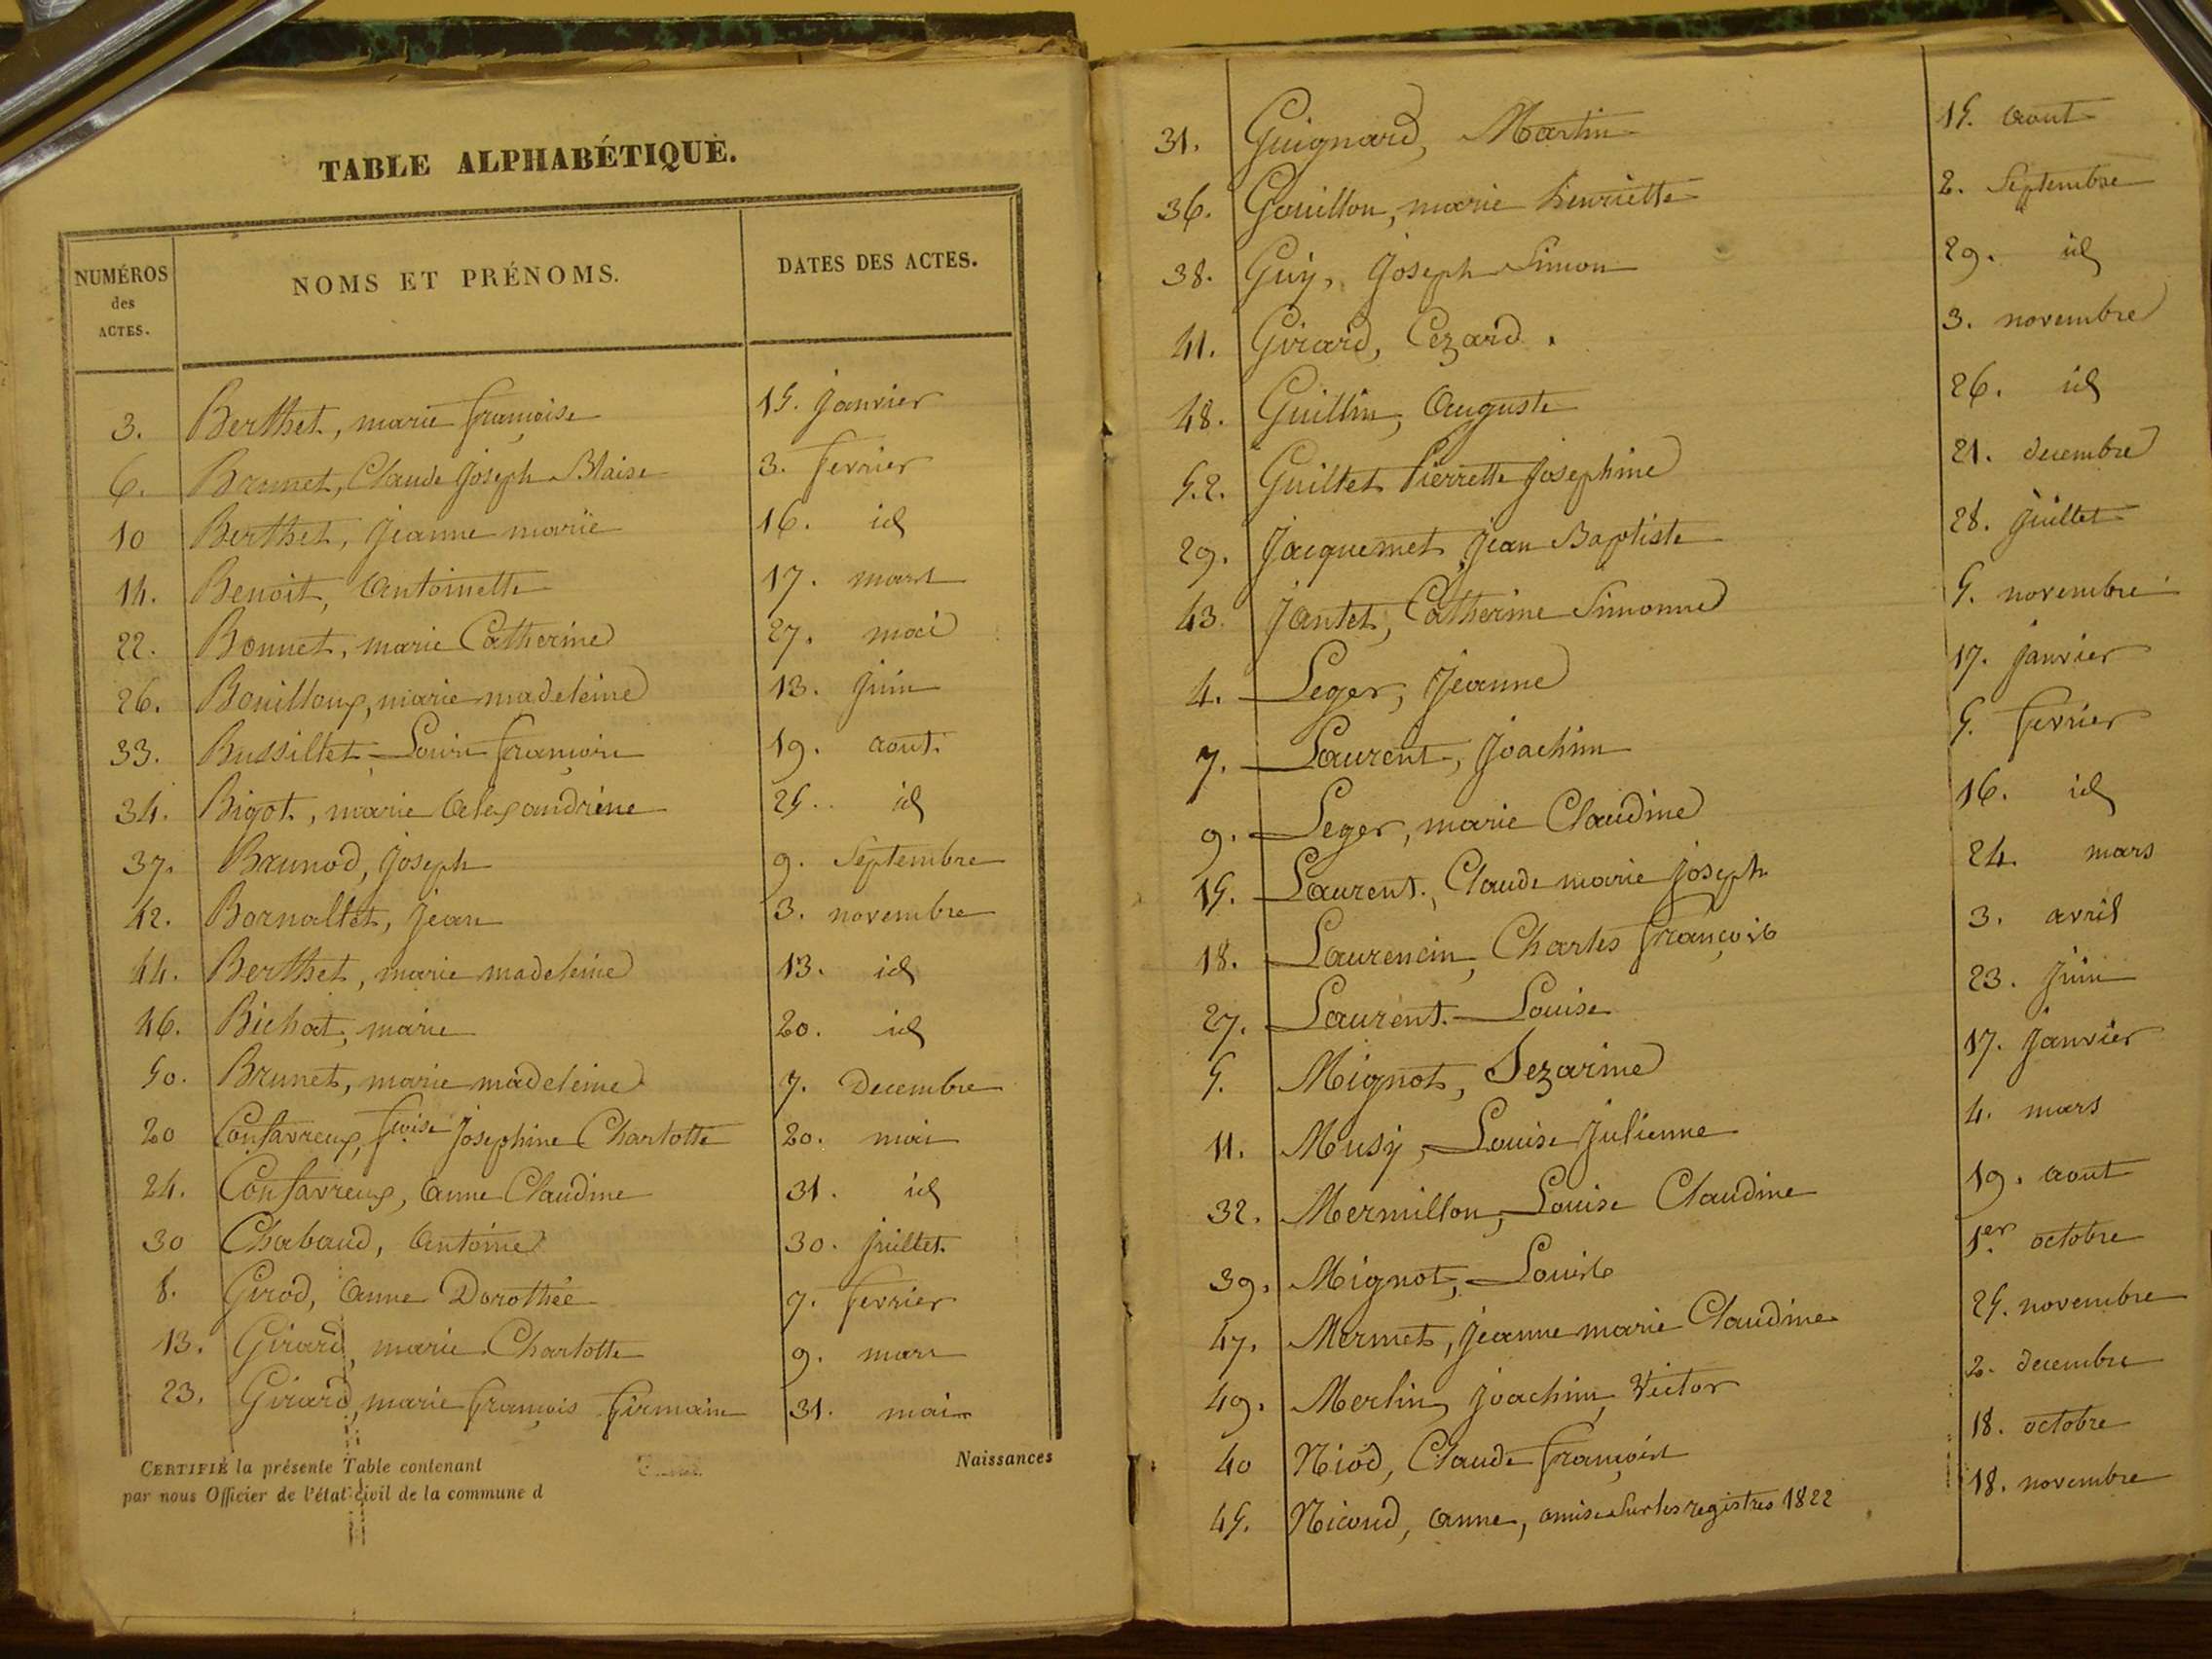 TABLE ALPHABÉTIQUE.
NUMÉROS des ACTES. NOMS ET PRÉNOMS. DATES DES ACTES.
3. Berthet, marie françoise 15. janvier
6. Brunet, Claude joseph Blaise 3. fevrier
10 Berthet, jeanne marie 16. id
14. Benoit, Antoinette 17. mars
22. Bonnet, marie Catherine 27. mai
26. Bouilloux, marie madeleine 13. juin
33. Bussillet Louis françois 19. aout.
34. Bigot, marie Alexandrine 25. id
37. Brunod, joseph 9. Septembre
42. Bornallet, jean 3. novembre
44. Berthet, marie madeleine 13. id
46. Bichat, marie 20. id
50. Brunet, marie madeleine 7. Decembre
20 Confavreux, fçoise josephine Charlotte 20. mai
24. Confavreux, Anne Claudine 31. id
30 Chabaud, Antoine 30. juillet.
8. Girod, Anne Dorothée 7. fevrier
13. Girard, marie Charlotte 9. mars
23. Girard, marie françois firmain 31. mai
CERTIFIÉ la présente Table contenant Naissances
par nous Officier de l'état civil de la commune d
31. Guignard, Martin 15. aout
36. Gouillon, marie henriette 2. Septembre
38. Guÿ, joseph Simon 29. id
41. Girard, Cezard. 3. novembre
48. Guillin, Auguste 26. id
52. Guillet Pierrette josephine 21. decembre
29. jacquemet jean Baptiste 28. juillet
43. jantet, Catherine Simonne 5. novembre
4. Leger, jeanne 17. janvier
7. Laurent, joachim 5. fevrier
9. Leger, marie Claudine 16. id
15. Laurent, Claude marie joseph 24. mars
18. Laurencin, Charles françois 3. avril
27. Laurent. Louise 23. juin
5. Mignot, Sezarine 17. janvier
11. Musÿ, Louise julienne 4. mars
32. Mermillon, Louise Claudine 19. aout
39. Mignot, Louis 1er octobre
47. Mermet, jeanne marie Claudine 25. novembre
49. Merlin, joachim Victor 2. decembre
40 Niod, Claude françois 18. octobre
45. Nicoud, anne, omise sur les registres 1822 18. novembre